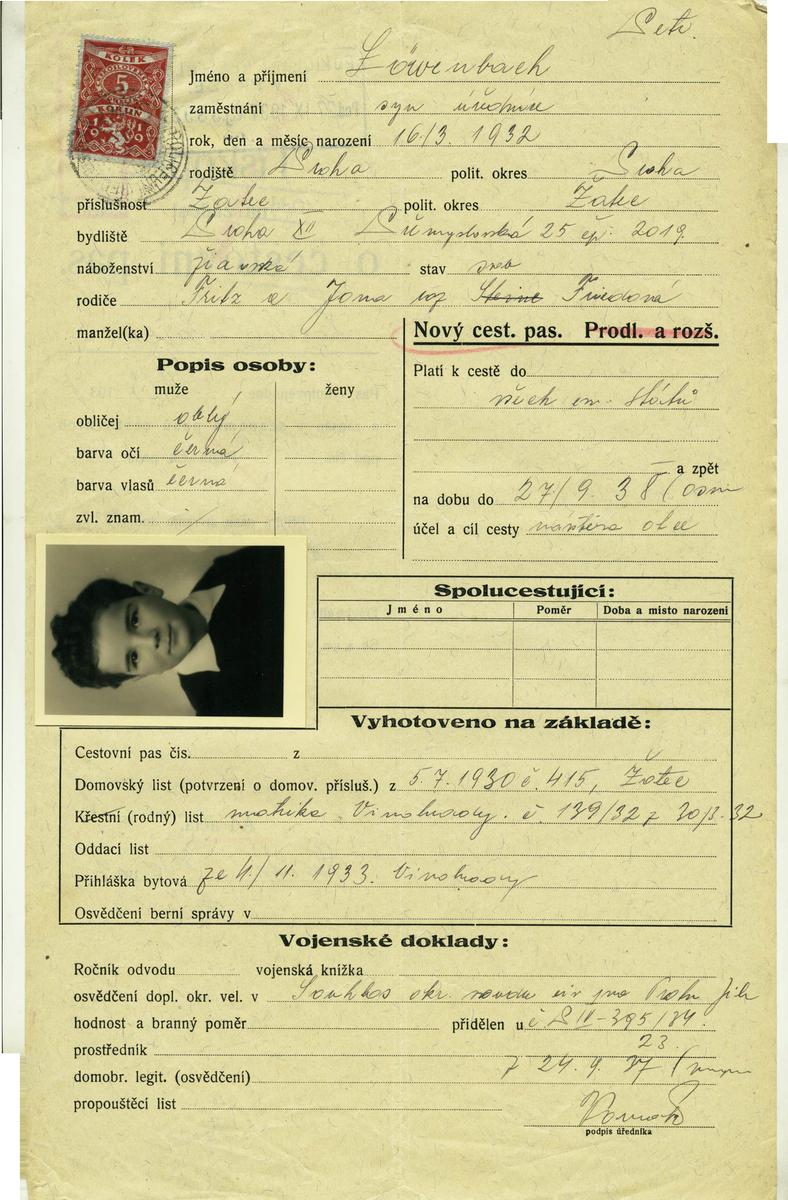 Petr.
Jméno a příjmení Löwenbach
zaměstnání syn úředníka
rok, den a měsíc narození 16/3. 1932
rodiště Praha polit. okres Praha
příslušnost Žatec polit. okres Žatec
bydliště Praha XII Přemyslovská 25 čp. 2019
náboženství židovské stav svob
rodiče Fritz a Jona roz Friedová
manžel(ka)
KOLEK
5
KORUN
Nový cest. pas. Prodl. a rozš.
Popis osoby:
muže ženy
obličej oblý
barva očí černá
barva vlasů černá
zvl. znam.
Platí k cestě do
všech ev. států
a zpět
na dobu do 27/9. 38 (osm
účel a cíl cesty návštěva
Spolucestující:
Jméno Poměr Doba a misto narozeni
Vyhotoveno na základě:
Cestovní pas čís. z
Domovský list (potvrzení o domov. přísluš.) z 5.7.1930 č. 415, Žatec
Křestní (rodný) list matrika Vinohrady. č. 139/32 z 30/3. 32
Oddací list
Přihláška bytová ze 4/11. 1933. Vinohrady
Osvědčení berní správy v
Vojenské doklady:
Ročník odvodu vojenská knížka
osvědčení dopl. okr. vel. v Souhlas okr. soudu civ pro Prahu jih
hodnost a branný poměr přidělen u č P IV-395/34.
prostředník 23.
domobr. legit. (osvědčení) z 24. 9. 37
propouštěcí list
podpis úředníka